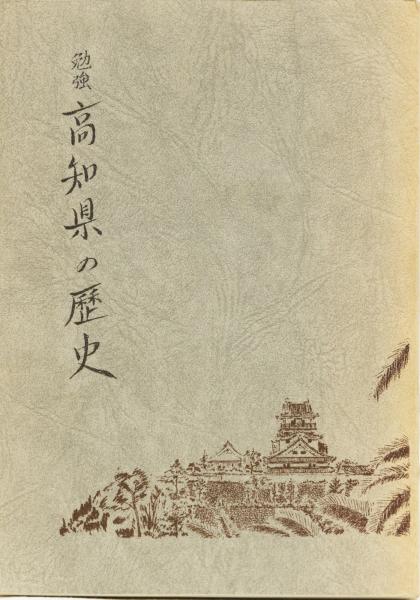 勉強
高知県の歴史